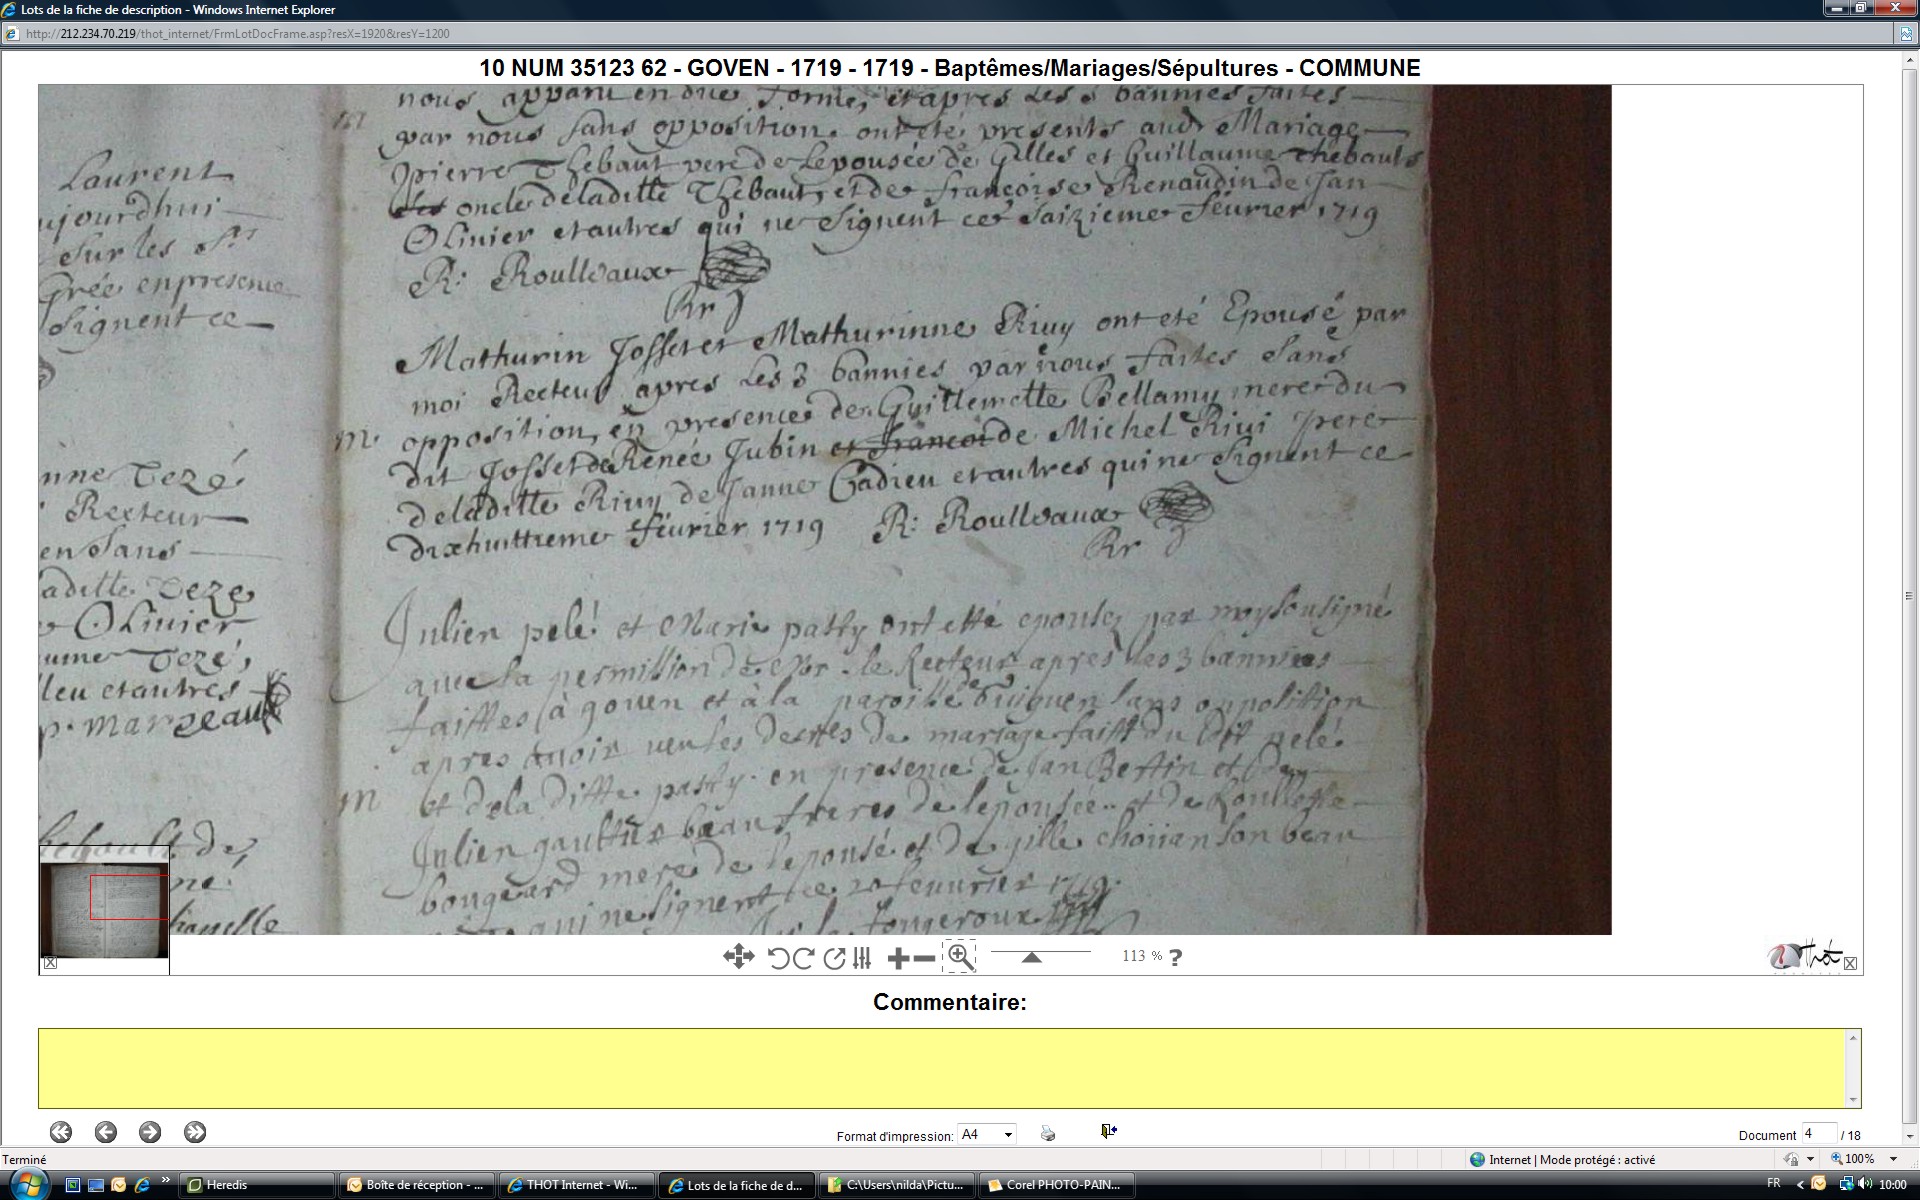 Lots de la fiche de description - Windows Internet Explorer
http://212.234.70.219/thot_internet/FrmLotDocFrame.asp?resX=1920&resY=1200
10 NUM 35123 62 - GOVEN - 1719 - 1719 - Baptêmes/Mariages/Sépultures - COMMUNE
Laurent
ujourdhui
sur les
Grée enpresence
Signent ce
nne Tezé
Recteur
en Sans
aditte Teze
Olivier
ume Tezé,
leu etautres
p. marzeau
de
ne
nous apparu en due forme, et apres les 3 bannies faites
par nous sans opposition. ont eté presents audt Mariage
Pierre Thebaut pere de Lepousée de Gilles et Guillaume Thebauts
oncle deladitte Thebaut, et de françoise Renaudin de Jan
Olivier etautres qui ne Signent ce saizieme fevrier 1719
R: Roulleaux
Rr
Mathurin Josset et Mathurinne Rivy ont eté Epousé par
moi Recteur apres les 3 bannies par nous faites sans
m opposition, en presence de Guillemette Bellamy mere du
dit Josset de Renée Jubin et françoi de Michel Rivi pere
deladitte Rivy de Janne Gadieu etautres qui ne Signent ce
dixhuittieme fevrier 1719 R: Roulleaux
Rr
Julien pelé et Marie patty ont etté epousez par moy sousigné
avec la permission de Mor. le Recteur apres les 3 bannies
faittes à goven et à la paroisse de guignen sans opposition
apres avoir de mariage faitt du dit pelé
m et dela ditte patty en presence de Jan Bertin et de
Julien gaultier beau freres de lepousée et de
bougeard mere de lepousé et de gille choüan son beau
qui ne signent ce fevurier 1719.
fougeroux
113 % ?
Thot
Commentaire:
Format d'impression: A4
Document 4 / 18
Terminé
Internet | Mode protégé : activé
100%
Heredis
Boîte de réception - ...
THOT Internet - Wi...
Lots de la fiche de d...
C:\Users\nilda\Pictu...
Corel PHOTO-PAIN...
FR
10:00